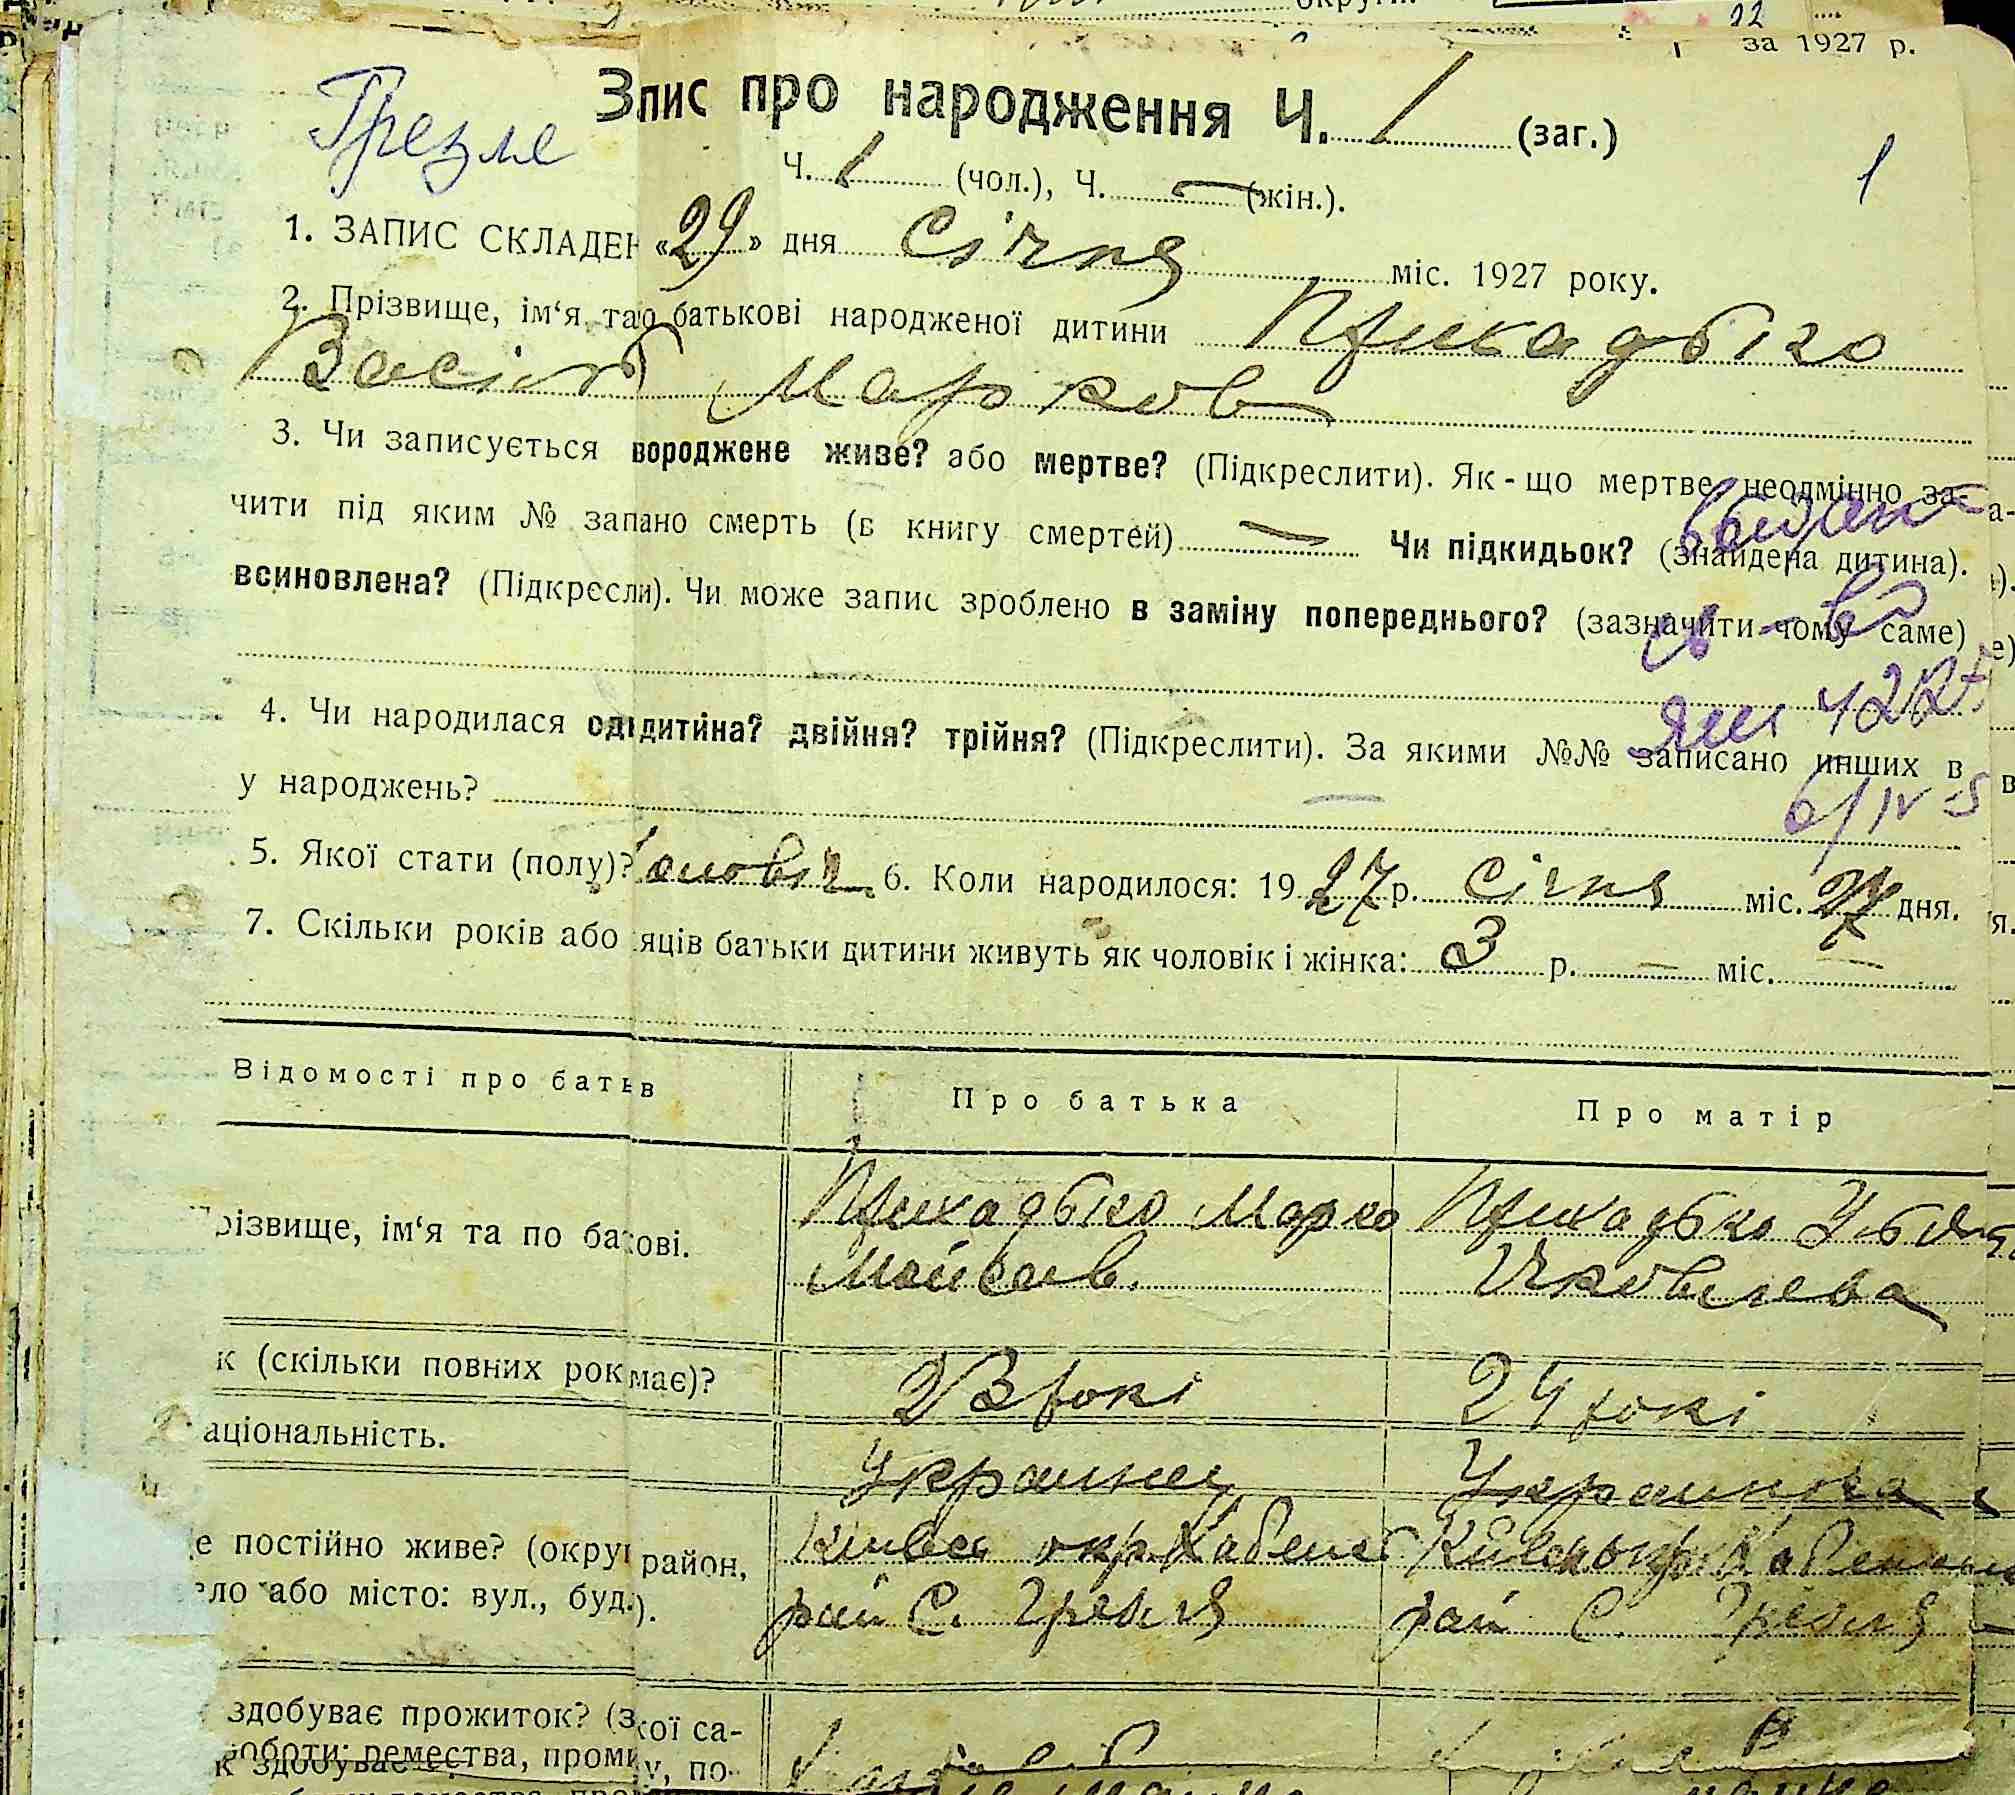 за 1927 р.
Грезле
Зпис про народження Ч. 1 (заг.)
Ч. 1 (чол.), Ч. — (жін.).
1
1. ЗАПИС СКЛАДЕН «29» дня Січня міс. 1927 року.
2. Прізвище, ім‘я та о батькові народженої дитини Прикадько
Васіль Марков
3. Чи записується вороджене живе? або мертве? (Підкреслити). Як-що мертве, неодмінно за-
чити під яким № запано смерть (в книгу смертей) — Чи підкидьок? (знайдена дитина).
всиновлена? (Підкресли). Чи може запис зроблено в заміну попереднього? (зазначити чому саме)
4. Чи народилася оді дитина? двійня? трійня? (Підкреслити). За якими №№ записано инших в
у народжень? —
5. Якої стати (полу)? чоловіч. 6. Коли народилося: 1927 р. січня міс. 27 дня.
7. Скільки років або яців батьки дитини живуть як чоловік і жінка: 3 р. — міс. —
Відомості про батьв
Про батька
Про матір
різвище, ім‘я та по баові.
Прикадько Марко
Мойсеев.
Прикадько
Яковлева
к (скільки повних рок має)?
23 рокі
24 рокі
аціональність.
Украинец
Украинка
е постійно живе? (окру район,
ло або місто: вул., буд.).
окр. Хабенс
рай С. Грезля
рай С. Грезля
здобуває прожиток? (з кої са-
оботи: ремества, проми у, по-
к здобуває